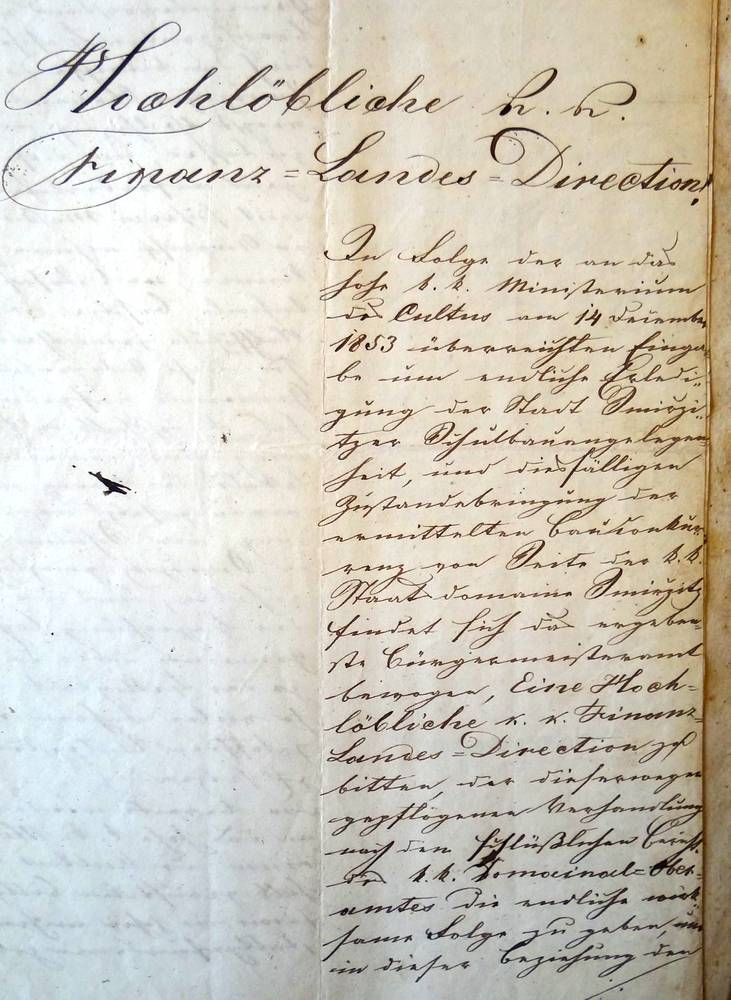 Hochlöbliche k. k.
Finanz=Landes=Direction!
In Folge der an das
hohe k. k. Ministerium
des Cultus am 14 Dezember
1853 überreichten Einga-
be um endliche Erledi-
gung der Stadt Smirži-
tzer Schulbauangelegen-
heit, und diesfälligen
Zustandebringung der
ermittelten Bauconkur-
renz von Seite der k. k.
Staatsdomaine Smiržitz
findet sich das ergeben-
ste Bürgermeisteramt
bewogen, Eine Hoch-
löbliche k. k. Finanz-
Landes=Direction zu
bitten, der dieserwegen
gepflogenen Verhandlung
nach den schlüßlichen
des k. k. Domainal=Ober-
amtes die endliche wirk-
same Folge zu geben, und
in dieser Beziehung den